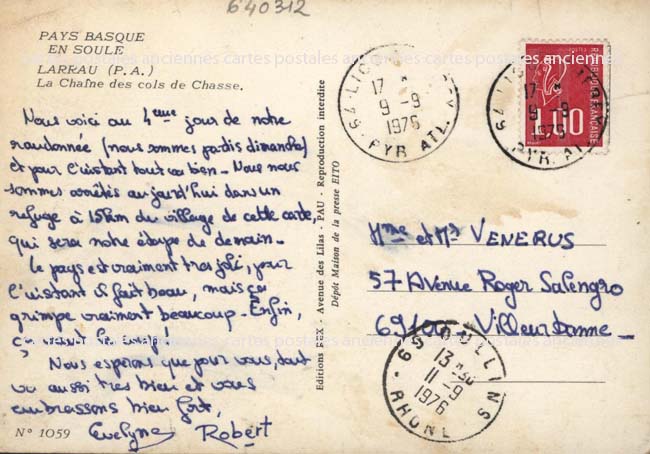 640312
PAYS BASQUE
EN SOULE
LARRAU (P. A.)
La Chaîne des cols de Chasse.
cartes postales anciennes cartes postales anciennes cartes postales anciennes
Nous voici au 4ème jour de notre
randonnée (nous sommes partis dimanche)
et pour l'instant tout va bien - Nous nous
sommes arrêtés aujourd'hui dans un
refuge à 15km du village de cette carte
qui sera notre étape de demain -
Le pays est vraiment très joli, pour
l'instant il fait beau, mais ça
grimpe vraiment beaucoup. Enfin,
Nous espérons que pour vous, tout
va aussi très bien et vous
embrassons bien fort,
Evelyne Robert
N° 1059
Editions REX - Avenue des Lilas - PAU - Reproduction interdite
Dépôt Maison de la presse EITO
64 LICQ
17 H
9 - 9
1976
PYR. ATL.
64 LICQ
17 H
9 - 9
1976
PYR. ATL.
REPUBLIQUE FRANÇAISE
1,00
Mme et Mr VENERUS
57 Avenue Roger Salengro
69100 - Villeurbanne
13 H 30
11 - 9
1976
RHONE